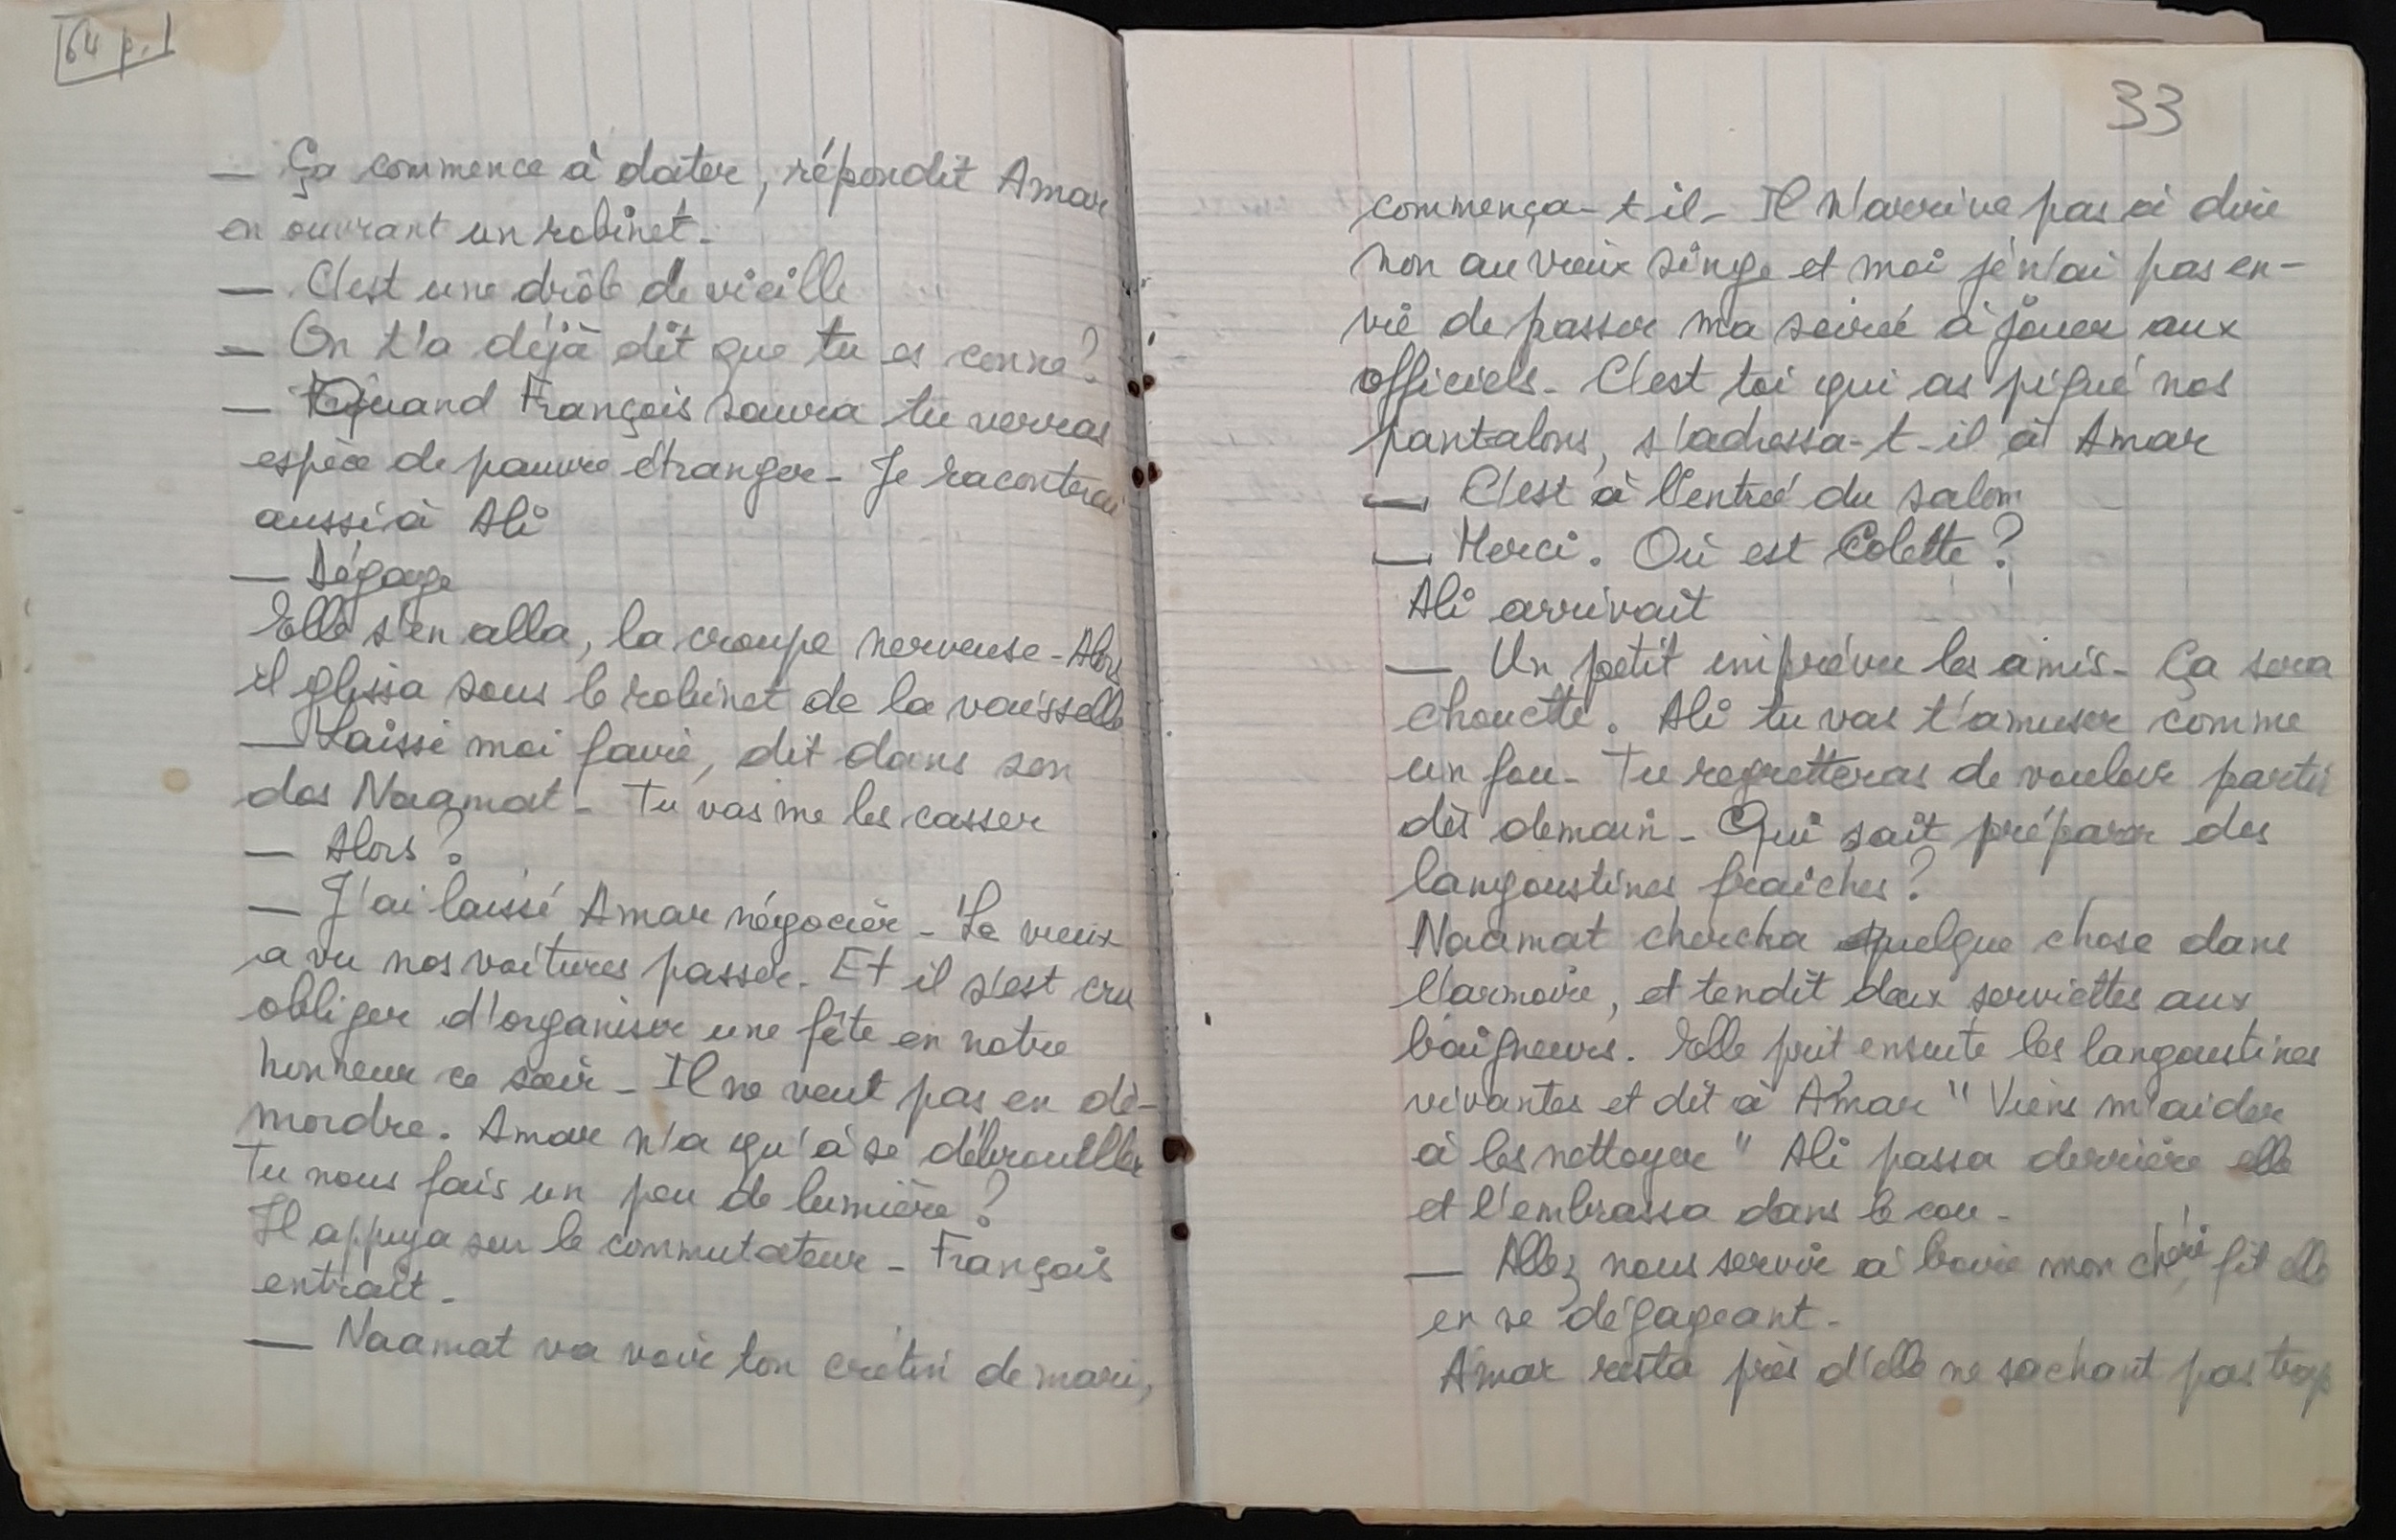 64 p.
— Ça commence à dater, répondit Amar
en ouvrant un robinet.
— C'est une drôle de vieille
— On t'a déjà dit que tu es conne?
— Quand François saura tu verras
espèce de pauvre étranger - Je raconterai
aussi à Ali
— Dégage
Elle s'en alla, la croupe nerveuse - Alors
il glissa sous le robinet de la vaisselle
— Laisse moi faire, dit dans son
dos Naamat - Tu vas me les casser
— Alors?
— J'ai laissé Amar négocier - Le vieux
a vu nos voitures passer. Et il s'est cru
obliger d'organiser une fête en notre
honneur ce soir - Il ne veut pas en dé-
mordre. Amar n'a qu'à se débrouiller
Tu nous fais un peu de lumière?
Il appuya sur le commutateur - François
entrait -
— Naamat va voir ton crétin de mari,
33
commença-t-il - Il n'arrive pas à dire
non au vieux singe et moi je n'ai pas en-
vie de passer ma soirée à jouer aux
officiels - C'est toi qui as piqué nos
pantalons, s'adressa-t-il à Amar
— C'est à l'entrée du salon
— Merci. Où est Colette?
Ali arrivait
— Un petit imprévu les amis - Ça sera
chouette. Ali tu vas t'amuser comme
un fou - Tu regretteras de vouloir partir
dès demain - Qui sait préparer des
langoustines fraiches?
Naamat chercha quelque chose dans
l'armoire, et tendit deux serviettes aux
baigneurs. Elle prit ensuite les langoustines
vivantes et dit à Amar " Viens m'aider
à les nettoyer " Ali passa derrière elle
et l'embrassa dans le cou -
— Allez nous servir à boire mon chéri, fit elle
en se dégageant -
Amar resta près d'elle ne sachant pas trop